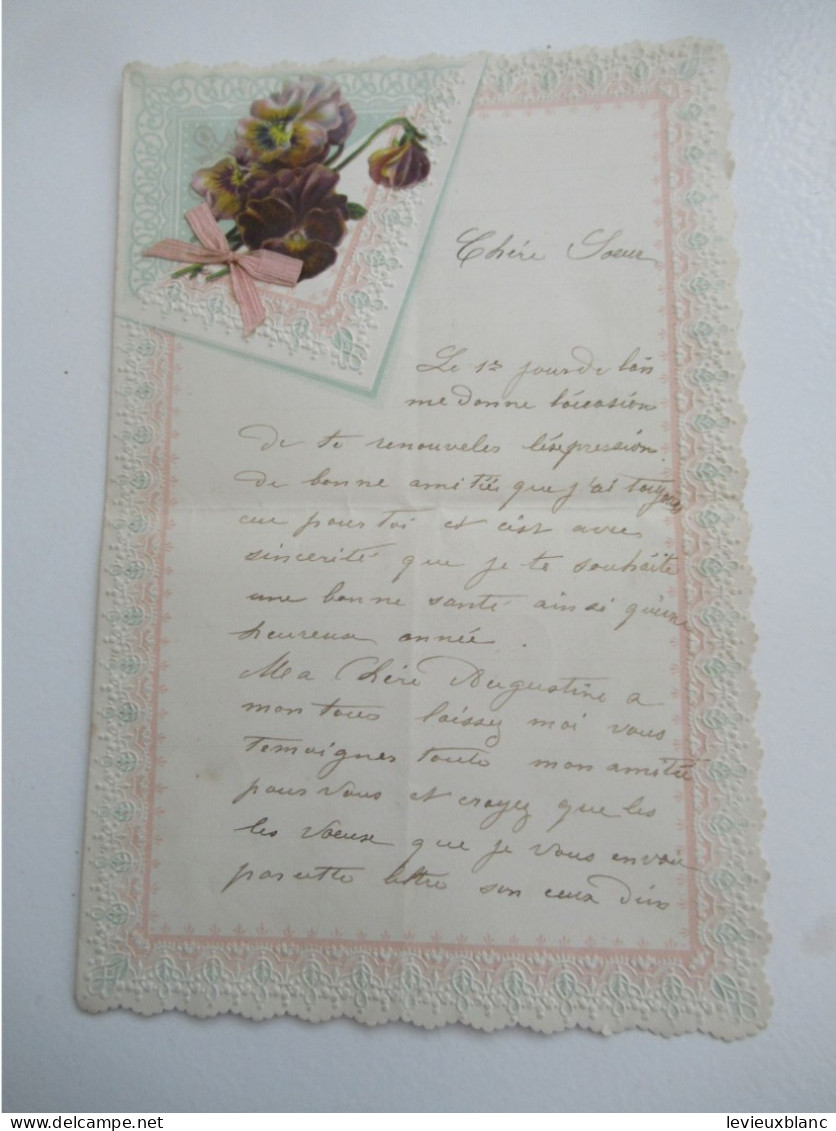 Chére Soeur
Le 1er jour de l'an
me donne l'occasion
de te renouveles l'éxpression
de bonne amitiée que j'ai toujours
eu pour toi et c'est avec
sincerité que je te souhaite
une bonne santé ainsi qu'une
heureux année.
Ma chére Augustine a
mon tous laissez moi vous
temoignes toute mon amitié
pour vous et croyez que les
les voeux que je vous envoie
par cette lettre son ceux d'un
levieuxblanc
www.delcampe.net